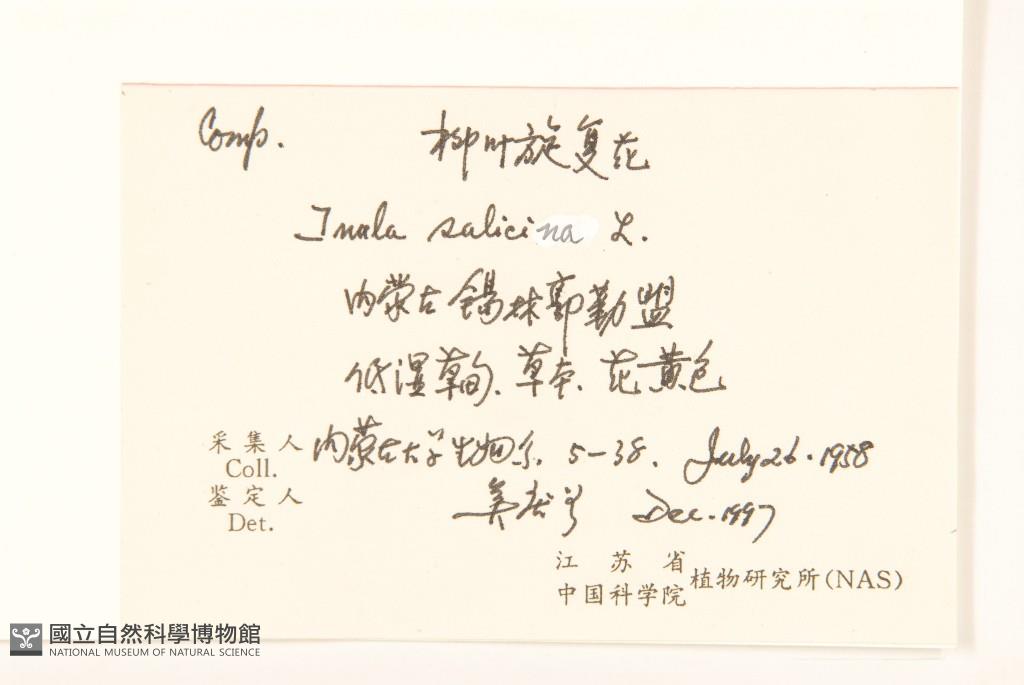 Comp. 柳叶旋复花
Inula salicina L.
内蒙古锡林郭勒盟
低湿草甸、草本、花黄色
采集人 内蒙古大学生物系 5-38. July 26. 1958
Coll.
鉴定人 Dec. 1997
Det.
江苏省
中国科学院 植物研究所(NAS)
國立自然科學博物館
NATIONAL MUSEUM OF NATURAL SCIENCE